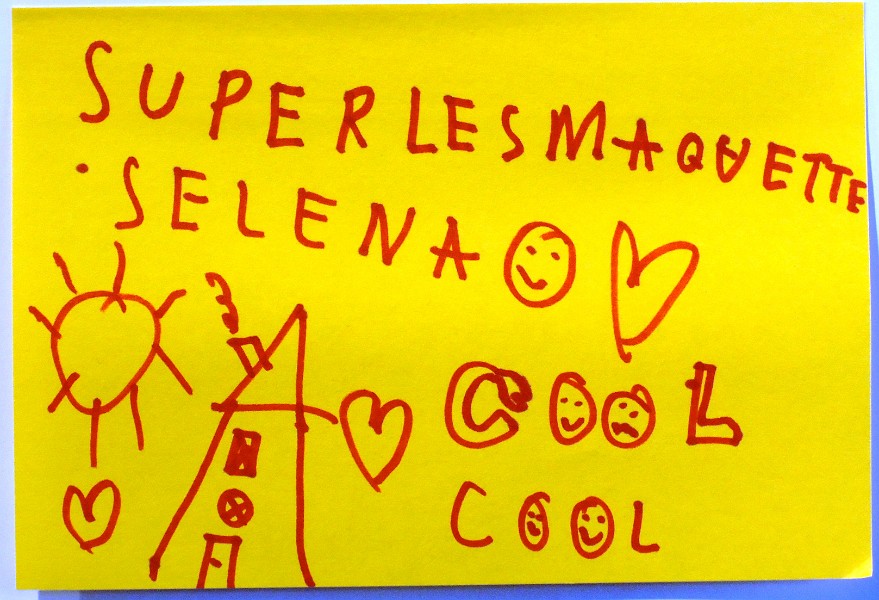 SUPER LES MAQUETTE
SELENA
COOL
COOL